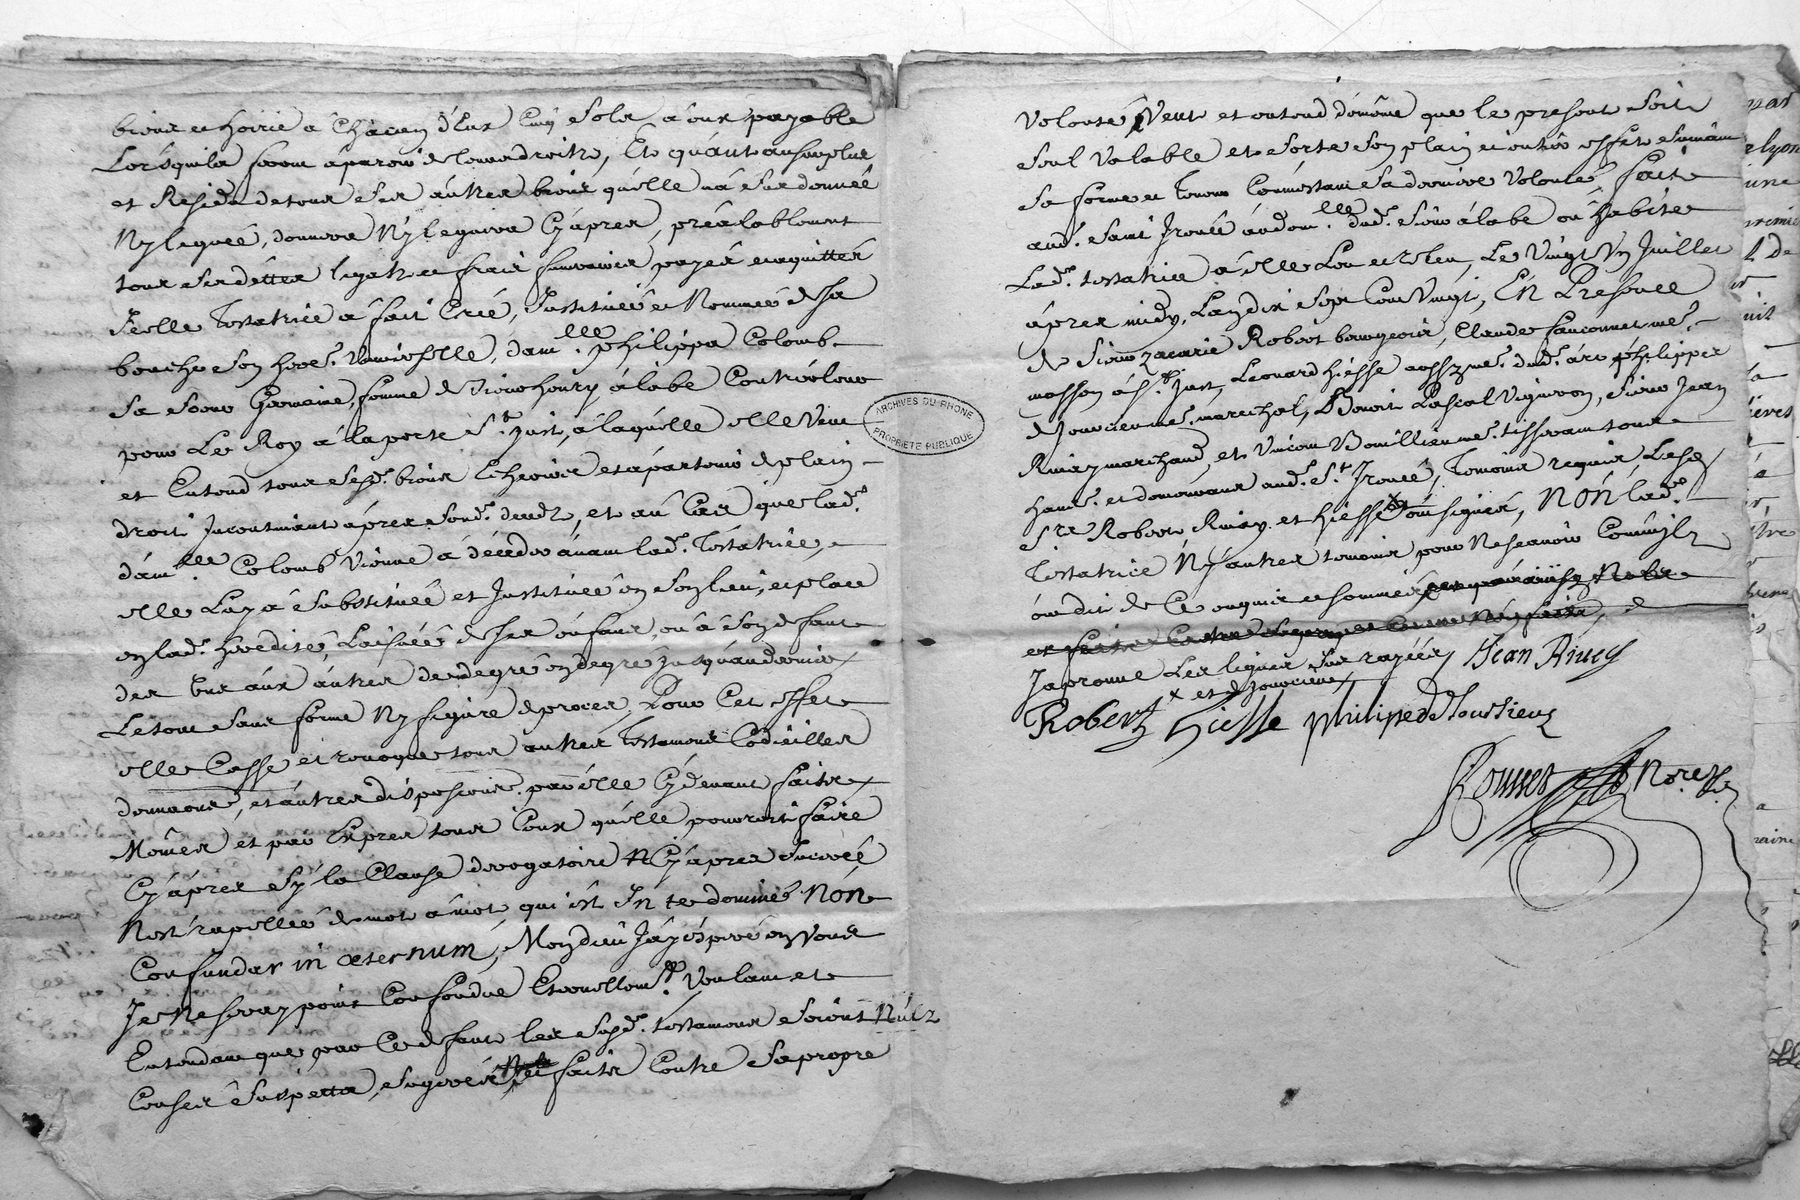 biens et hoirie à Chacun d'Eux Cinq Sols à eux payable
Lorsquils seront aparoir de leurs droitz, Et quant au surplus
et Residu de tous Ses autres biens quelle n'a Sus donnéé
Ny leguéé, donnera Ny leguera Cy apres, préalablement
tous Ses dettes legatz et frais funeraires payés et aquittés
Icelle Testatrice à fait Créé, Instituéé et Nomméé de Sa
bouche Son here. Universelle, dam.lle philippa Colomb
Sa Soeur Germaine, femme de Sieur henry àlabe Contrôleur
pour Le Roy à la porte St. Just, à laquelle elle Veut
et Entend tous Sesd. biens Echeoir et apartenir de plain
droit Incontinant apres Sond. decedz, et au Cas que lad.
dam.lle Colomb Vienne à décéder avant lad. Testatrice,
elle Luy à Substituéé et Instituéé en Son lieu, et place
en lad. heredité, Laisséé de Ses enfans, ou à Son deffaut
des Uns aux autres de degré en degré jusqu'au dernier
Le tout Sans forme Ny figure de proces, Pour Cet effet
elle Casse et revoque tous autres Testamens Codicilles
donnaons, et autres disposions. par elle Cy devant faites
Mêmes et par Exprés tous Ceux quelle pourroit faire
Cy apres Sy la Clause derogatoire Cy apres Inseréé
N'est rapelléé de mot à mot, qui est In te domine Non
Confundar in æternum, Mon dieu J'ay éspéré en Vous
Je Ne Seray point Confondue Eternellem.t Voulant et
Entendant que par Ce deffaut les Susd. testamens Soient Nulz
Censés Suspetz, Sugerés et faits Contre Sa propre
Volonté, Veut et entend de même que le present Soit
Seul Valable et Sorte Son plain et entier effet Suivant
Sa forme et teneur Comm'estant Sa derniere Volonté, fait
aud. Saint Irenéé au dom.lle dud. Sieur àlabe ou habite
Lad. testatrice à elle Leu et releu, Le Vingt Un Juillet
apres midy, Lan dix Sept Cent Vingt, En Presence
de Sieurs zacarie Robert bourgeois, Claude fauconnet me.
masson à St. Just, Leonard hiesse aussy me. dud. art philippes
de Joursieu me. marechal, Benoit Pascal Vigneron, Sieur Jean
Riuay marchand, et Vincent Bouillieu me. tisserant tous
hans. et demeurans aud. St. Irenéé, Temoins requis Lesd.
Srs Robert, Riuay et hiesse ont signés, Non lad.
Testatrice Ny autres temoins pour Ne Scavoir Comm'ilz
ont dit de Ce enquis et sommés
J'aprouve Les lignes Sus rayéés Jean Riuey
x et de Joursieux
Robert hiesse philippe de Joursieux
Rousset Nore.
ARCHIVES DU RHONE
PROPRIETE PUBLIQUE